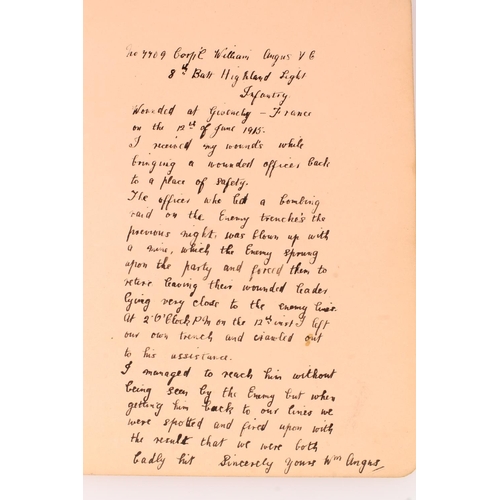 No 7709 Corp'l William Angus V C
8th Batt Highland Light
Infantry
Wounded at Givenchy - France
on the 12th of June 1915.
I received my wounds while
bringing a wounded officer back
to a place of safety.
The officer who led a bombing
raid on the Enemy trenches the
previous night, was blown up with
a mine, which the Enemy sprung
upon the party and forced them to
retire leaving their wounded leader
lying very close to the enemy lines.
At 2 O'Clock P.M on the 12th inst I left
our own trench and crawled out
to his assistance.
I managed to reach him without
being seen by the Enemy but when
getting him back to our lines we
were spotted and fired upon with
the result that we were both
badly hit Sincerely Yours Wm Angus